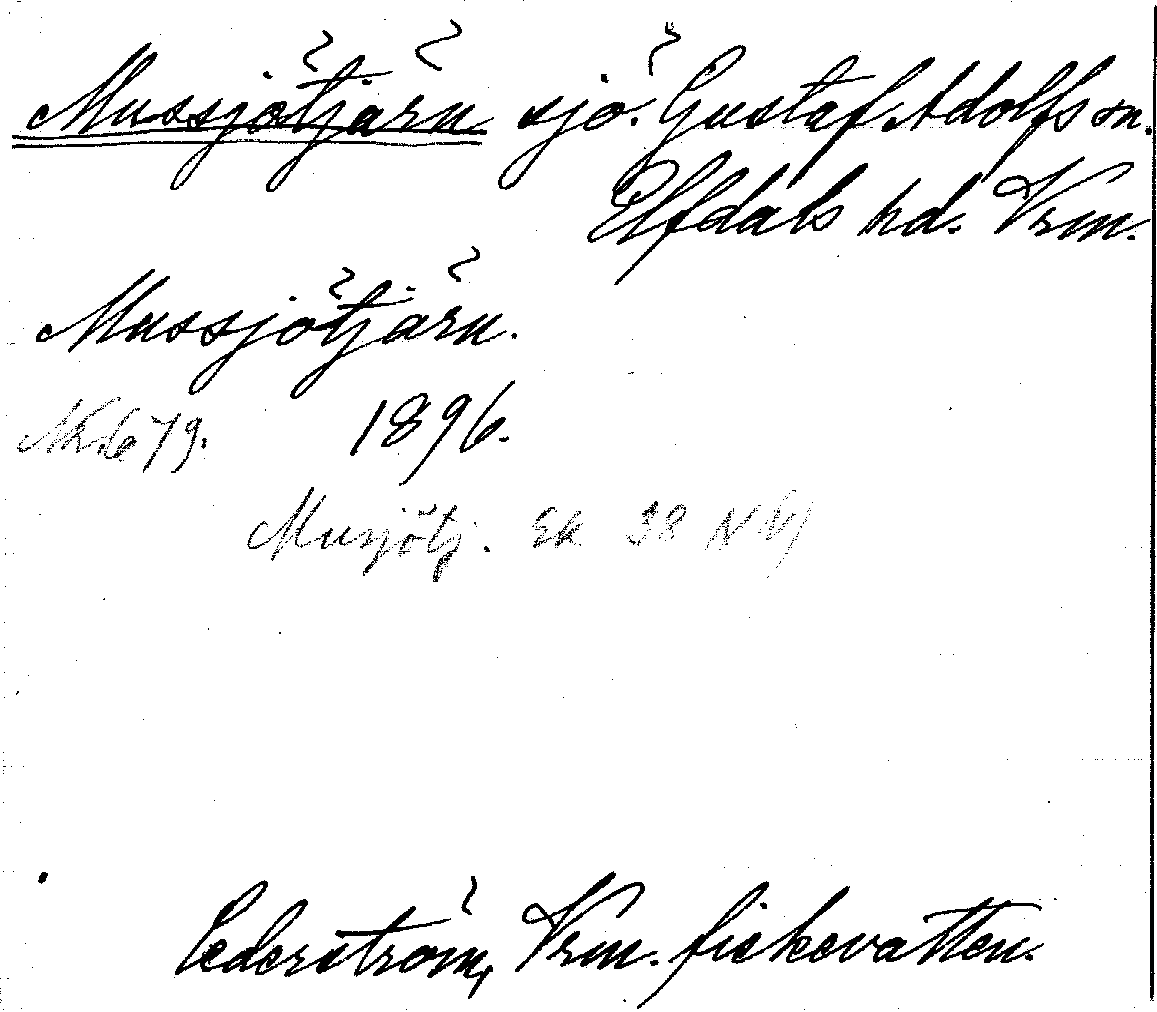 Mussjötjärn sjö. Gustaf Adolfs sn.
Elfdals hd. Vrm.
Mussjötjärn.
Nr. 679. 1896.
Musjötj. Ek 38 NV
Cederström, Vrm. fiskevatten.